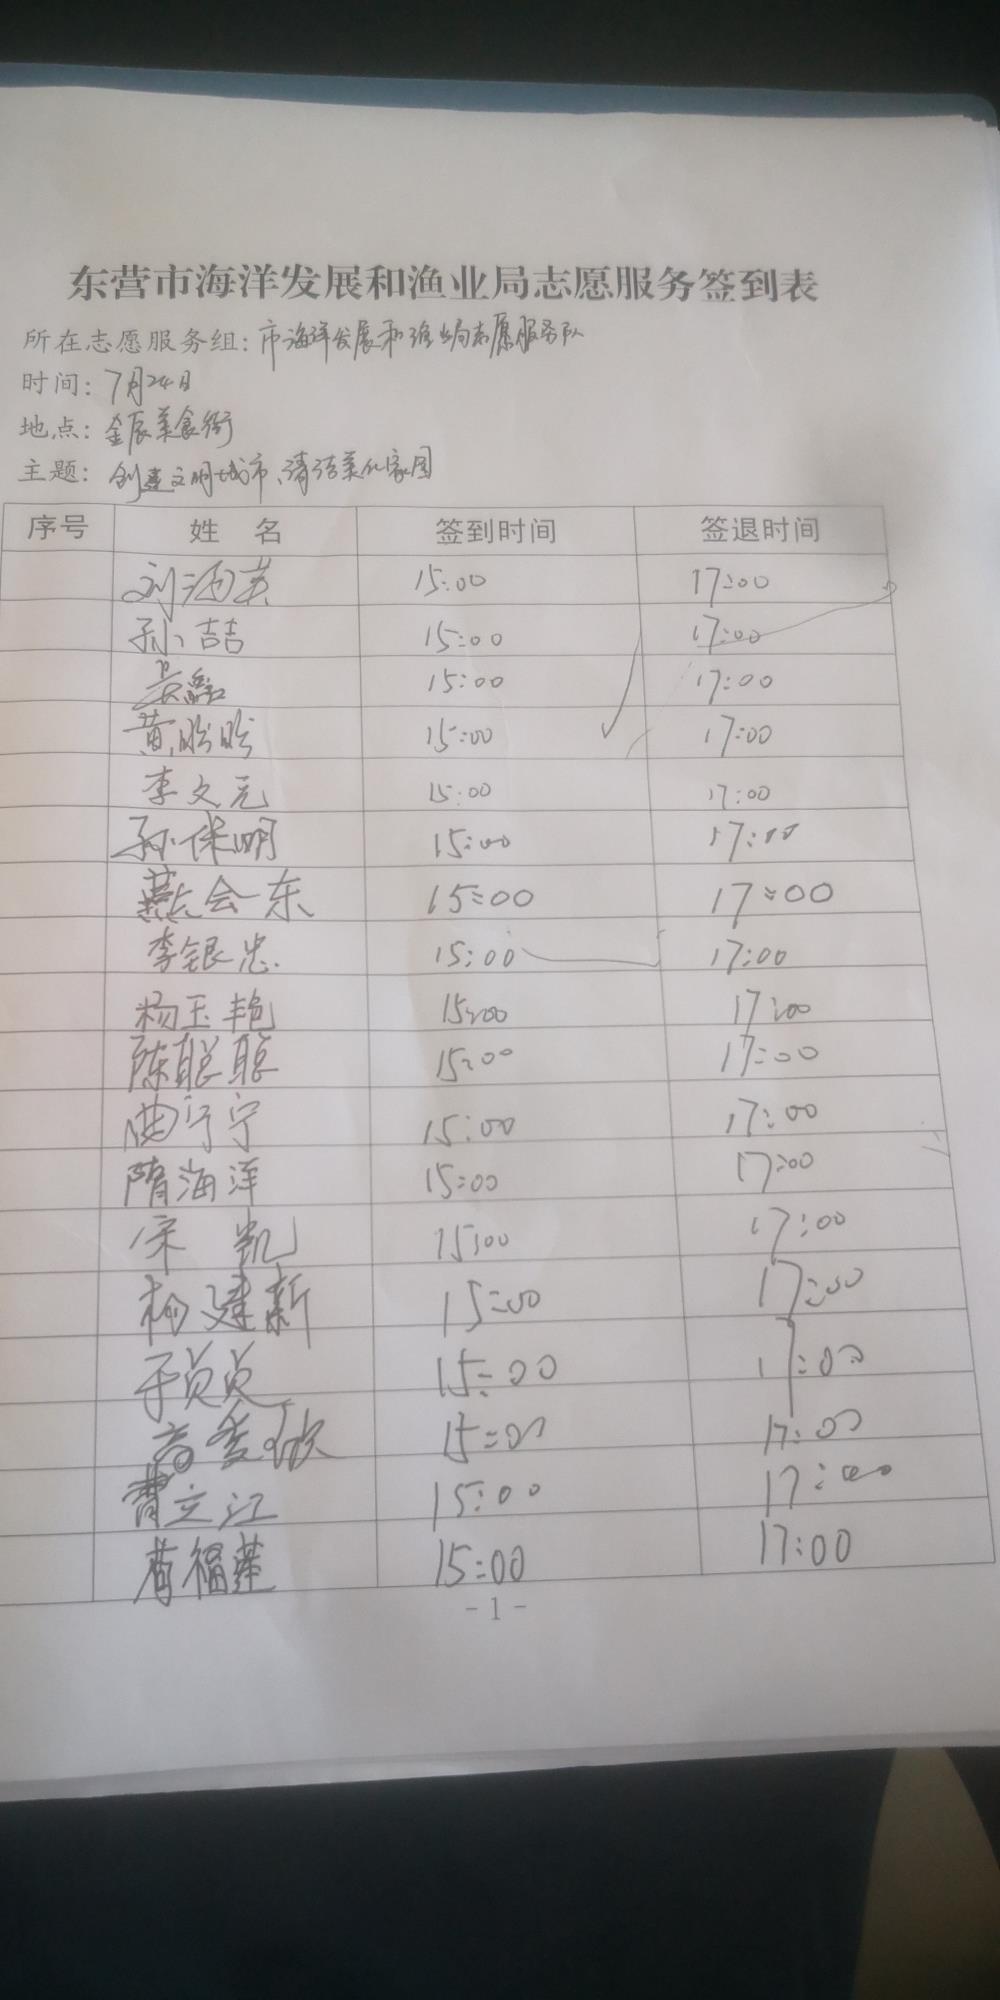 东营市海洋发展和渔业局志愿服务签到表
所在志愿服务组：市海洋发展和渔业局志愿服务队
时间：7月24日
地点：金辰美食街
主题：创建文明城市、清洁美化家园
序号 姓 名 签到时间 签退时间
刘洒英 15:00 17:00
孙喆 15:00 17:00
吴 15:00 17:00
黄盼盼 15:00 17:00
李文元 15:00 17:00
孙保明 15:00 17:00
燕会东 15:00 17:00
李银忠 15:00 17:00
杨玉艳 15:00 17:00
陈聪聪 15:00 17:00
曲宁宁 15:00 17:00
隋海洋 15:00 17:00
宋 凯 15:00 17:00
杨建新 15:00 17:00
于贞贞 15:00 17:00
高秀 15:00 17:00
曹立江 15:00 17:00
福莲 15:00 17:00
- 1 -